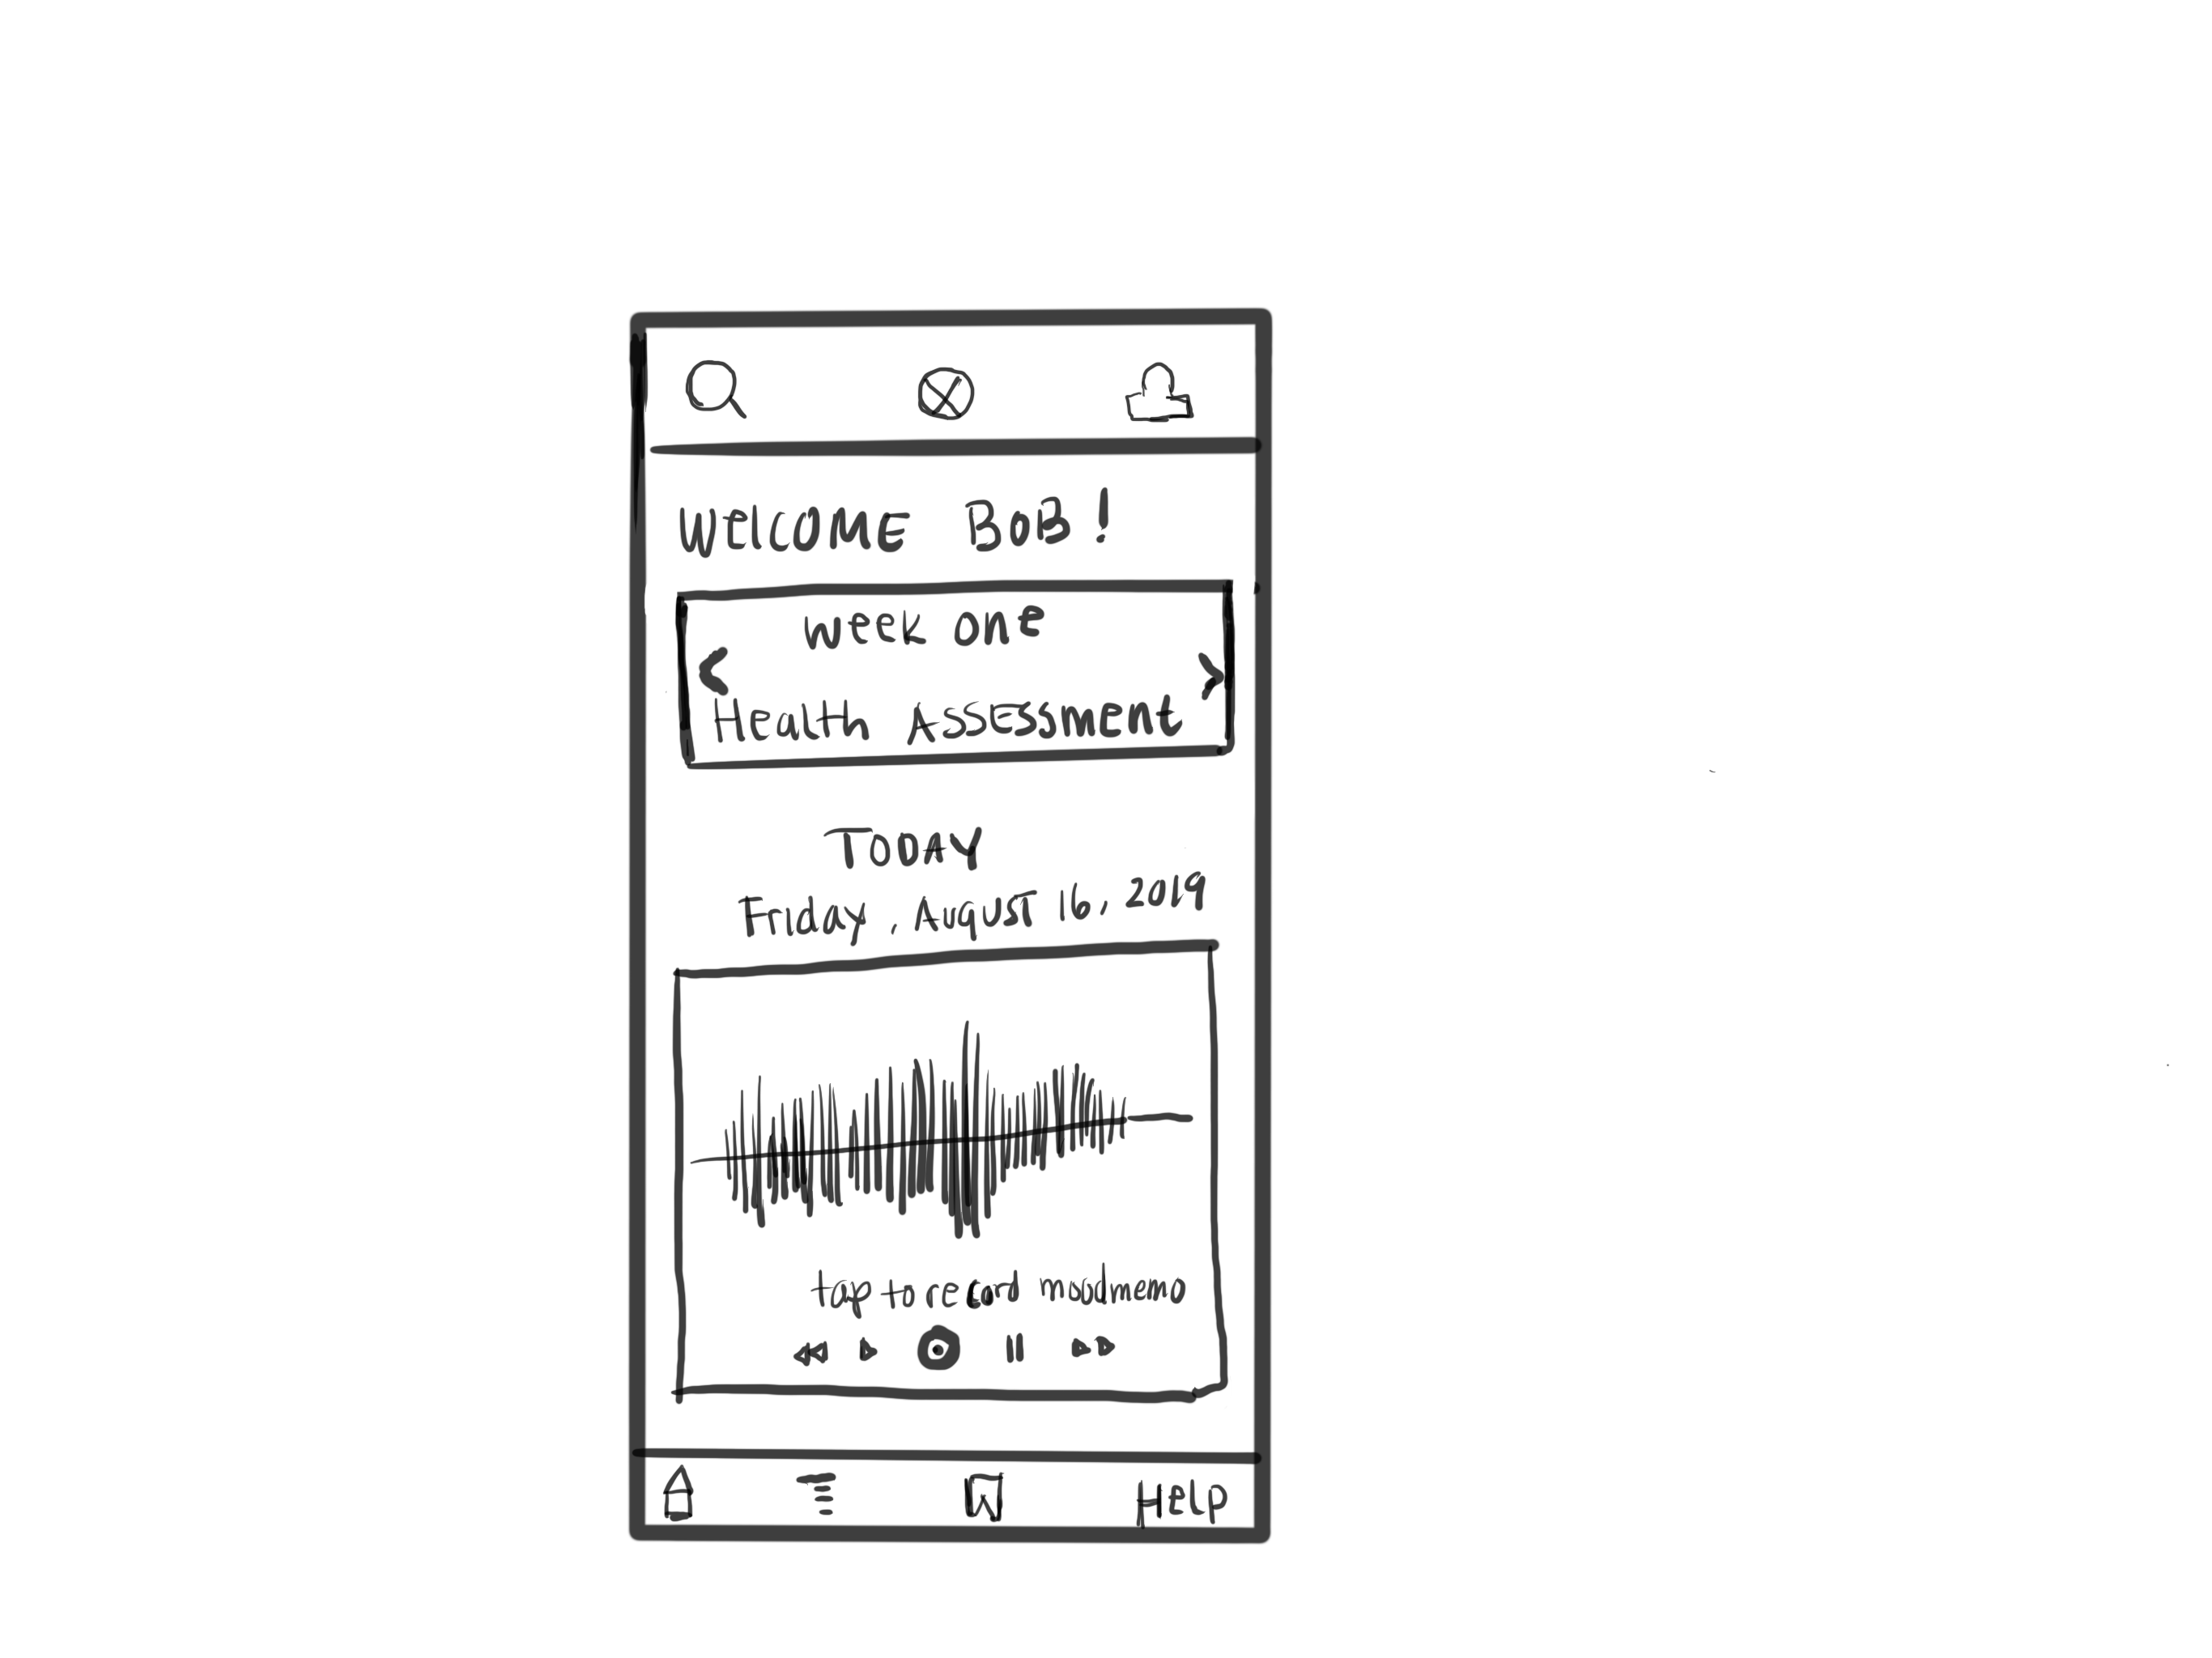 WElCOME BOB!
week one
Health ASSESSment
TODAY
Friday, AuguST 16, 2019
tap to record moodmemo
HElp